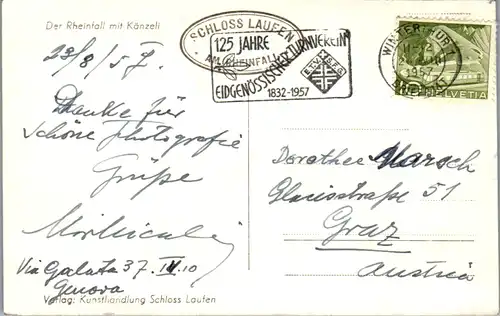 Der Rheinfall mit Känzeli
28/8/57.
Danke für
schöne Photografie
Grüße
Via Galata 37. IV.10
Genova
Verlag: Kunsthandlung Schloss Laufen
SCHLOSS LAUFEN
AM RHEINFALL
125 JAHRE
EIDGENÖSSISCHER TURNVEREIN
1832-1957
WINTERTHUR
1957
HELVETIA
Dorothea Marsch
Glacisstraße 51
Graz
Austria